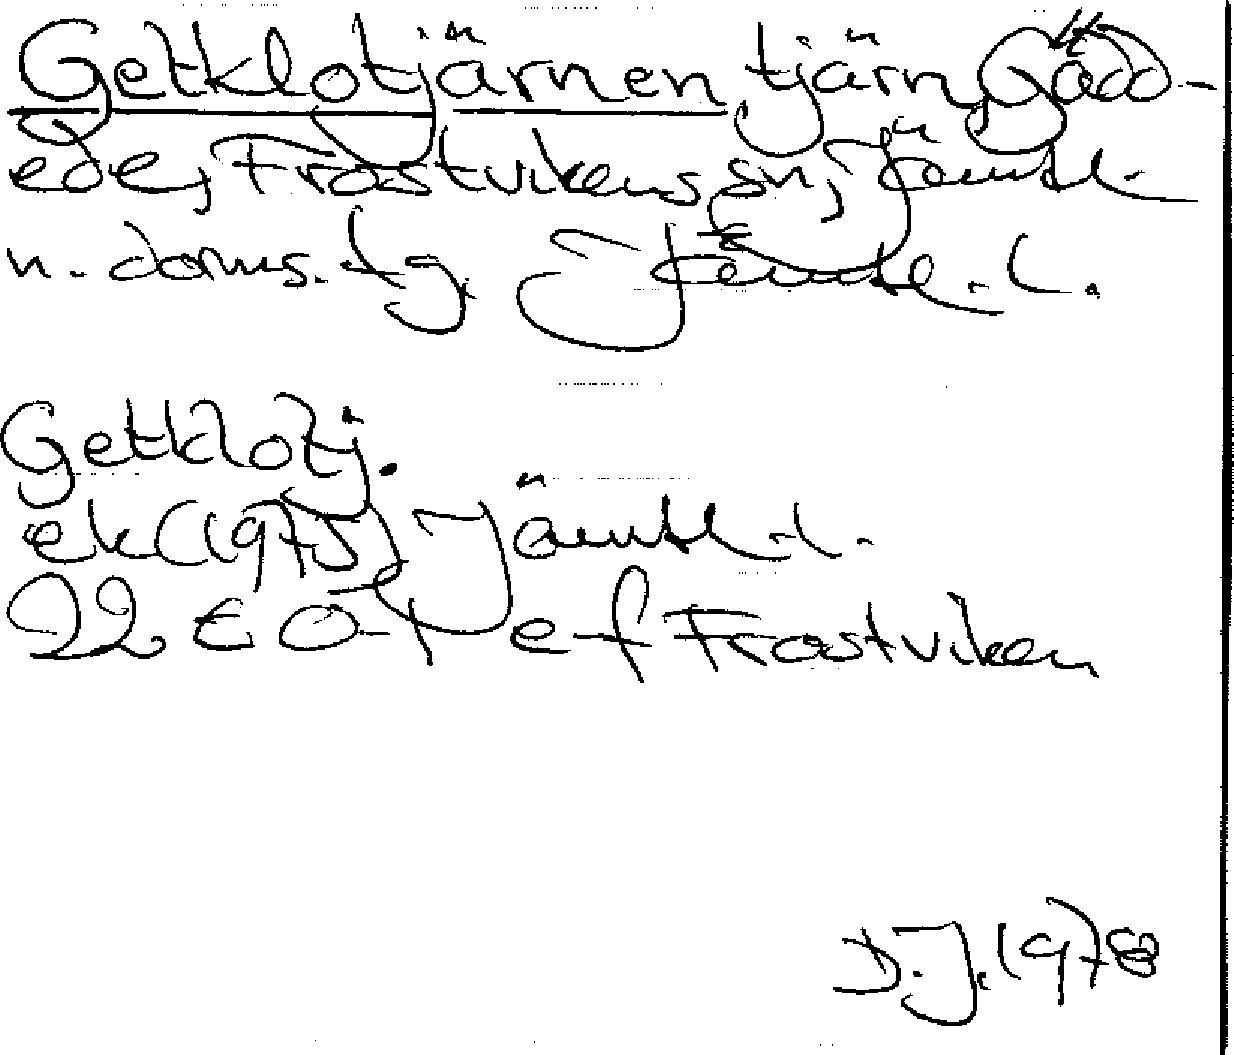 Getklotjärnen tjärn, Gädd-
ede, Frostvikens sn, Jämtl.
n. doms. tg. Jämtl. L.
Getklotj.
ek (1975) Jämtl. L.
22 E 0-1 e-f Frostviken
D.J. 1978